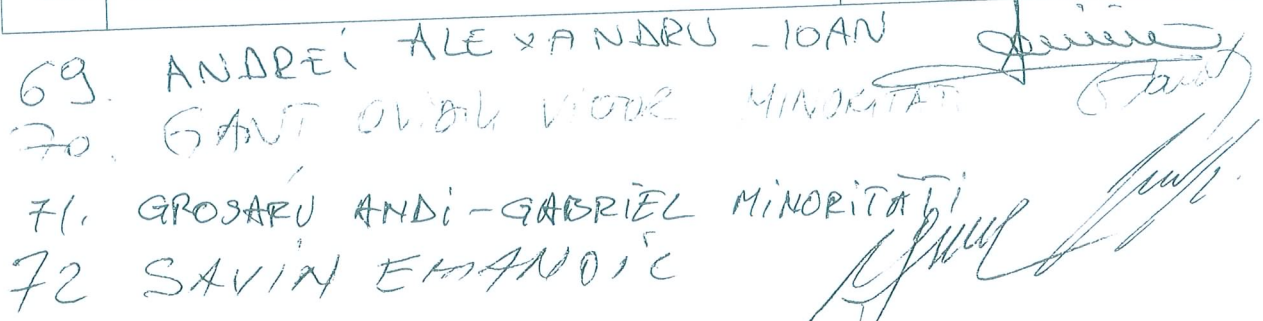 69. ANDREI ALEXANDRU - IOAN
70. GANT OVIDIU VICTOR MINORITATI
71. GROSARU ANDI-GABRIEL MINORITATI
72 SAVIN EMANOIL